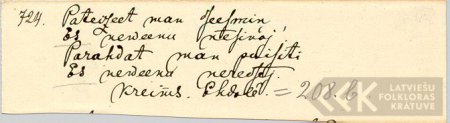 724. Pateizeet man seesmiņ,
Es neweenu nesinaj,
Parahdat man puisiti
Es neweena neredsej.
Kreim̃s. Ekdole. = 208. b
LATVIEŠU
FOLKLORAS
KRĀTUVE